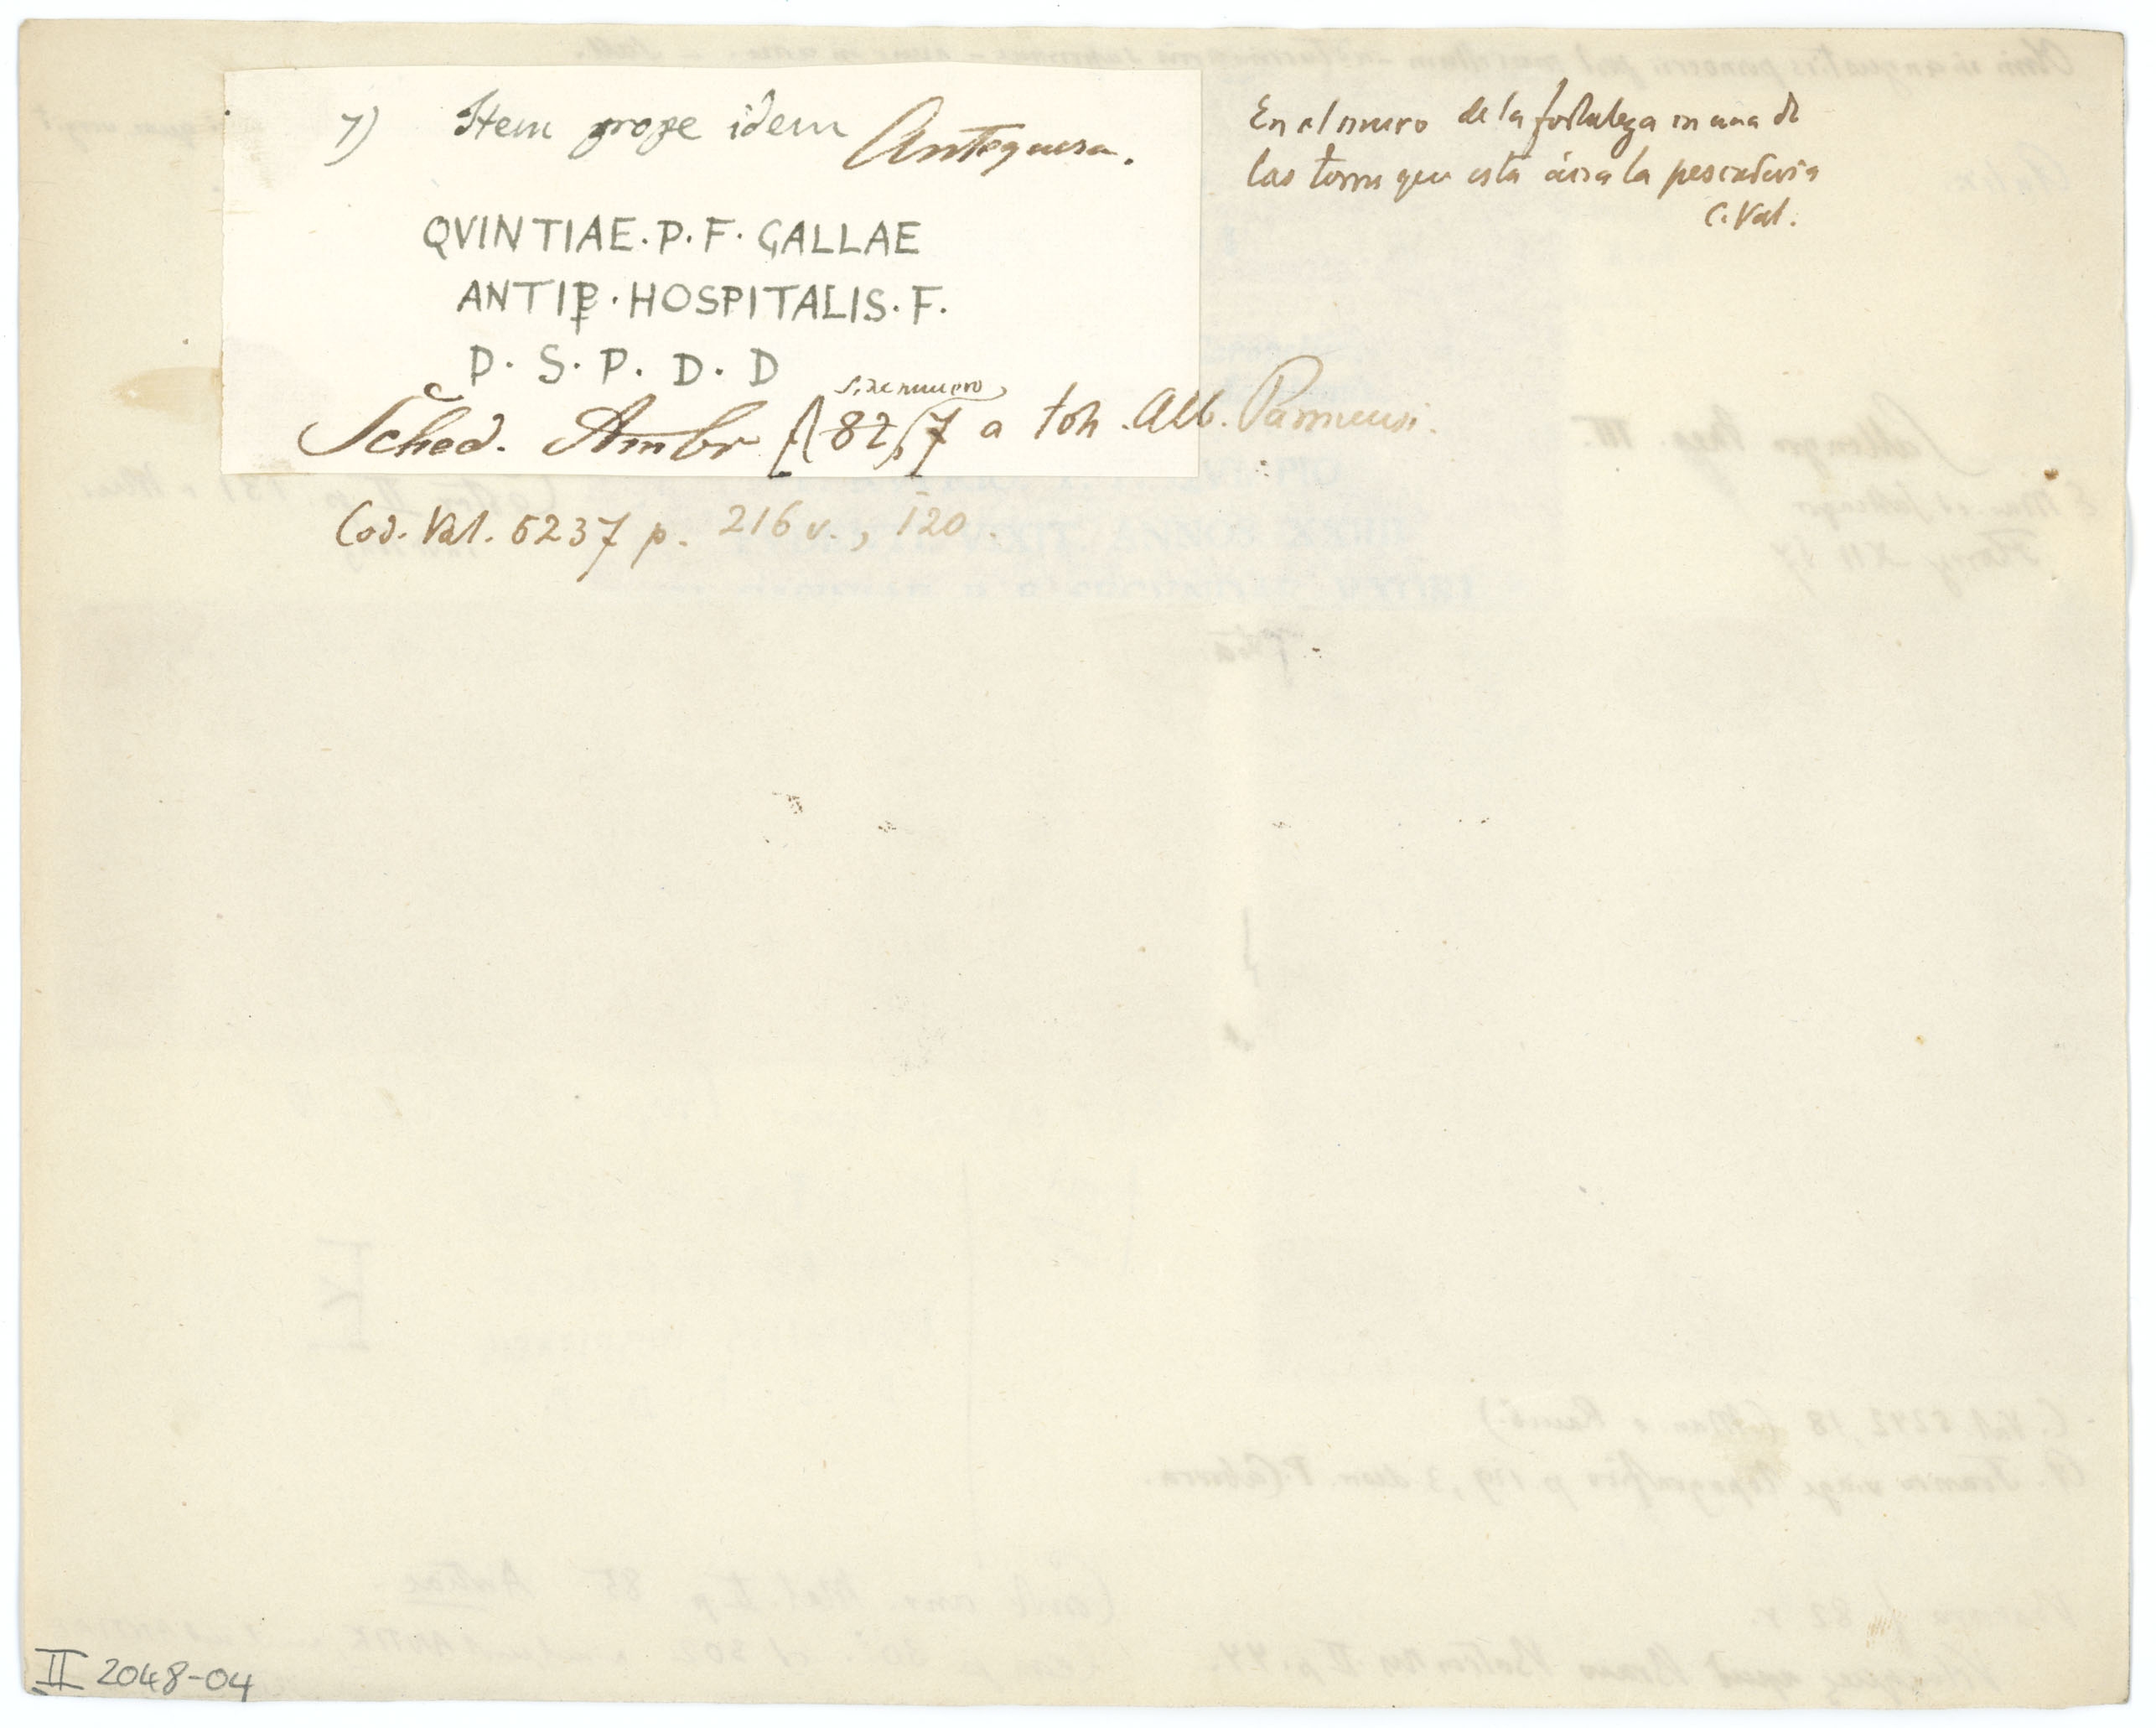 7) Item prope idem Antequera.
QVINTIAE. P. F. GALLAE
ANTIP. HOSPITALIS. F.
P. S. P. D. D
Sched. Ambr f 82, 7 a Joh. Alb. Parmensi.
Cod. Val. 5237 p. 216 v., 120.
En el muro de la fortaleza en una de
las torres que está acia la pescaderia
C. Val.
II 2048-04